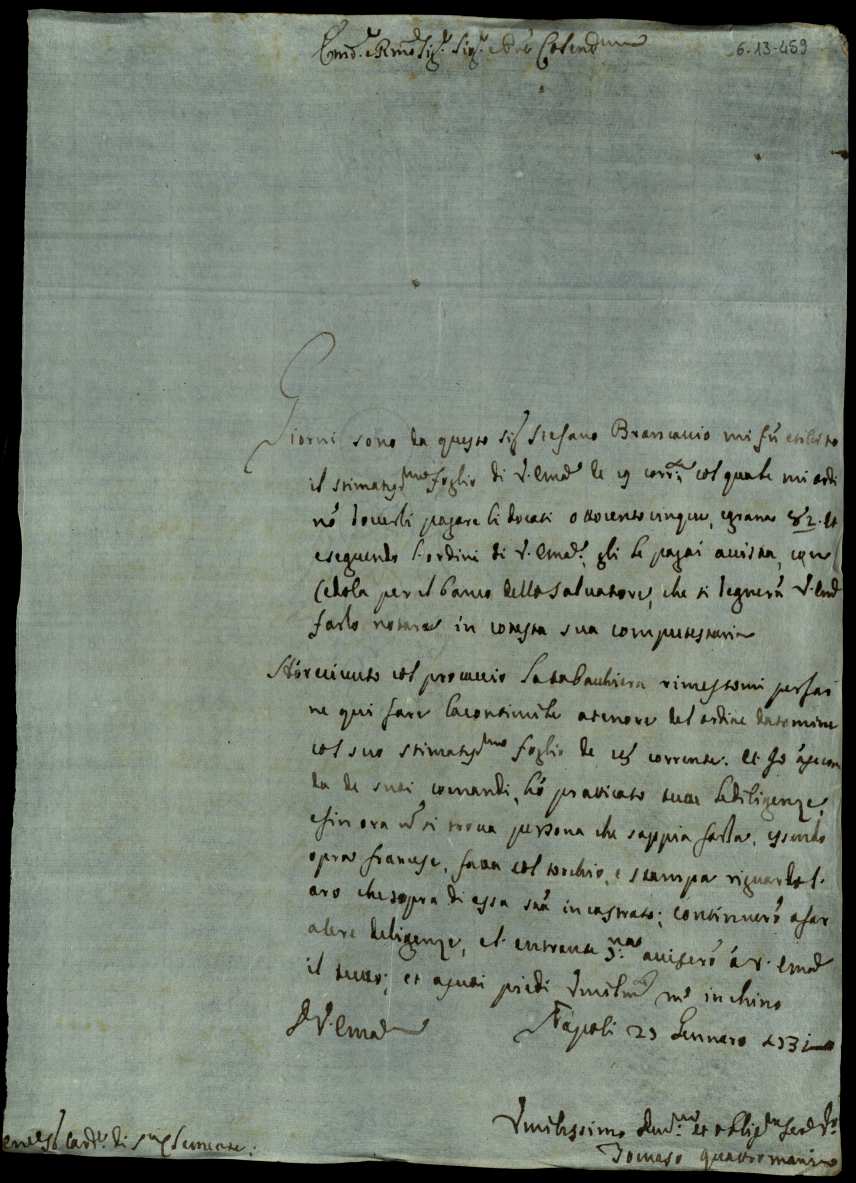 Em̃o. e Rm̃o Sig.r Sig.r e Pr̃on Colendmo
6-13-459
Giorni sono da questo Sig.r Stefano Brancaccio mi fù esibito
il stimatissmo foglio di V. Emã de 19 corr.te col quale mi ordi
nò doverli pagare li docati ottocentocinque, e grana 82. et
eseguendo l'ordini di V. Emã, gli le pagai a vista, con
Cedola per il banco del Salvatore, che si degnerà V. Emã
farlo notare in cotesta sua computestaria
Hò ricevuto col procaccio la tabacchiera rimessomi per far
ne qui fare la contimile a tenore del ordine datomine
col suo stimatissmo foglio de corrente. et Io à secon
da de suoi comandi, hò pratticato tutte le diligenze,
e fin ora nõ si trova persona che sappia farla, essendo
opra francese, fatta col torchio, e stampa riguardo l'
oro che sopra di essa stà incastrato; continuerò a far
altre deligenze, e l'entrante avisarò à V. Emã
il tutto; et a suoi piedi Vmilm.te m'inchino
D. V. Emã
Napoli 23 Gennaro 1731
Vmilissimo Devmo et obligmo Serv.
Tomaso Quattromani
Card.l di S. Clemente.